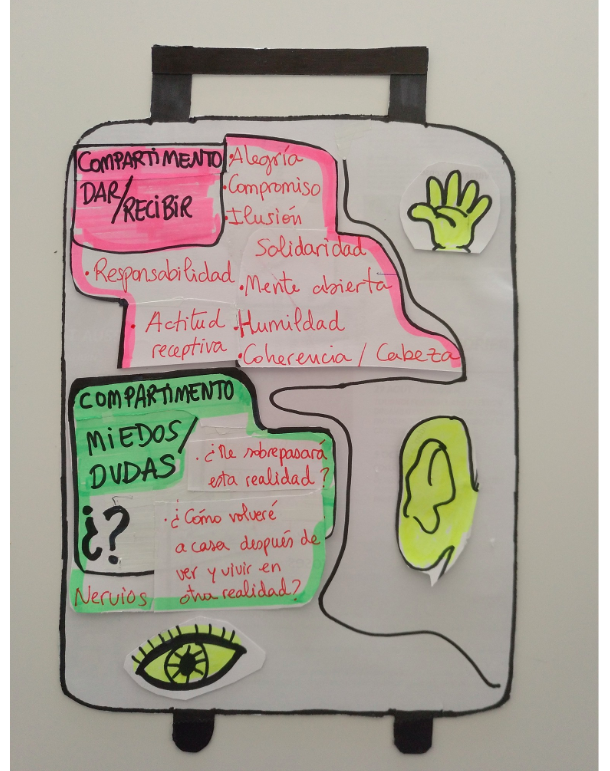 COMPARTIMENTO
DAR/RECIBIR
• Alegría
• Compromiso
• Ilusión
Solidaridad
• Responsabilidad
• Mente abierta
• Actitud
receptiva
• Humildad
• Coherencia / Cabeza
COMPARTIMENTO
MIEDOS/
DUDAS
¿?
• ¿Me sobrepasará
esta realidad?
• ¿Cómo volveré
a casa después de
ver y vivir en
otra realidad?
Nervios